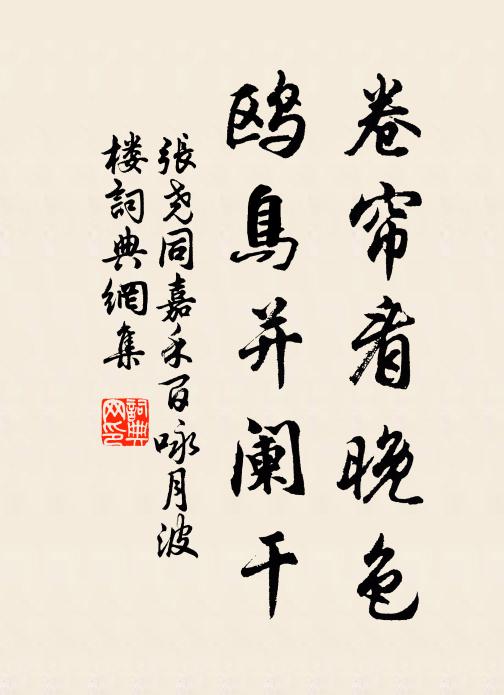 卷帘看晚色
鸥鳥并阑干
張尧同嘉禾百咏月波
楼詞典網集
詞典
网印